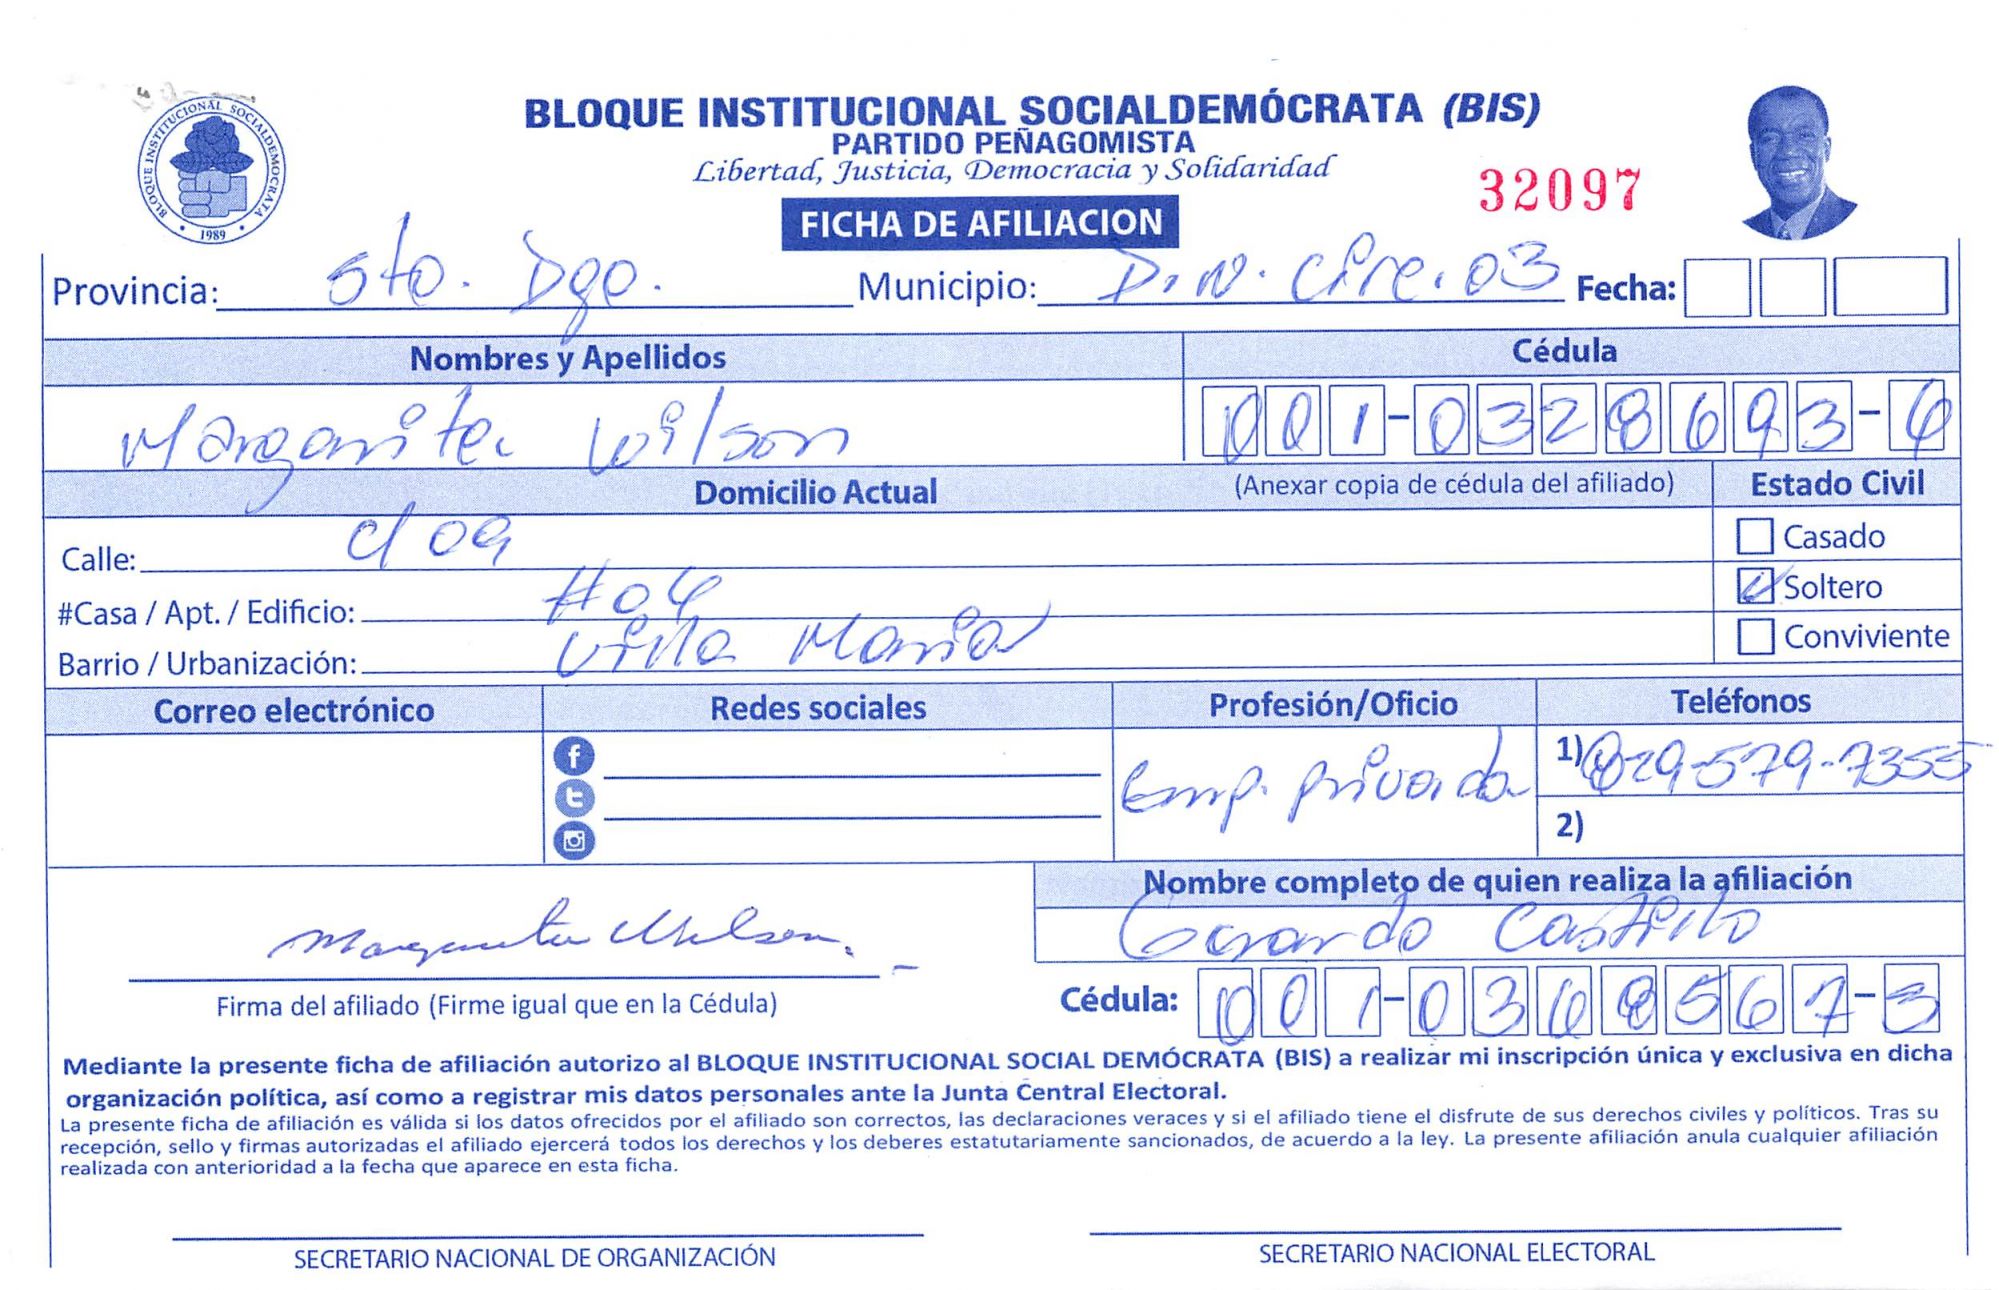 BLOQUE INSTITUCIONAL SOCIALDEMOCRATA
1989
BLOQUE INSTITUCIONAL SOCIALDEMÓCRATA (BIS)
PARTIDO PEÑAGOMISTA
Libertad, Justicia, Democracia y Solidaridad
32097
FICHA DE AFILIACION
Provincia: Sto. Dgo. Municipio: D.N. Circ. 03 Fecha:
Nombres y Apellidos Cédula
Margarita Wilson 001-0328693-6
Domicilio Actual (Anexar copia de cédula del afiliado) Estado Civil
Calle: c/ 09 Casado
#Casa / Apt. / Edificio: #04 Soltero
Barrio / Urbanización: Villa Maria Conviviente
Correo electrónico Redes sociales Profesión/Oficio Teléfonos
Emp. privada 1) 829-579-7355
2)
Nombre completo de quien realiza la afiliación
Gerardo Castillo
Margarita Wilson
Firma del afiliado (Firme igual que en la Cédula) Cédula: 001-0368567-3
Mediante la presente ficha de afiliación autorizo al BLOQUE INSTITUCIONAL SOCIAL DEMÓCRATA (BIS) a realizar mi inscripción única y exclusiva en dicha
organización política, así como a registrar mis datos personales ante la Junta Central Electoral.
La presente ficha de afiliación es válida si los datos ofrecidos por el afiliado son correctos, las declaraciones veraces y si el afiliado tiene el disfrute de sus derechos civiles y políticos. Tras su
recepción, sello y firmas autorizadas el afiliado ejercerá todos los derechos y los deberes estatutariamente sancionados, de acuerdo a la ley. La presente afiliación anula cualquier afiliación
realizada con anterioridad a la fecha que aparece en esta ficha.
SECRETARIO NACIONAL DE ORGANIZACIÓN SECRETARIO NACIONAL ELECTORAL